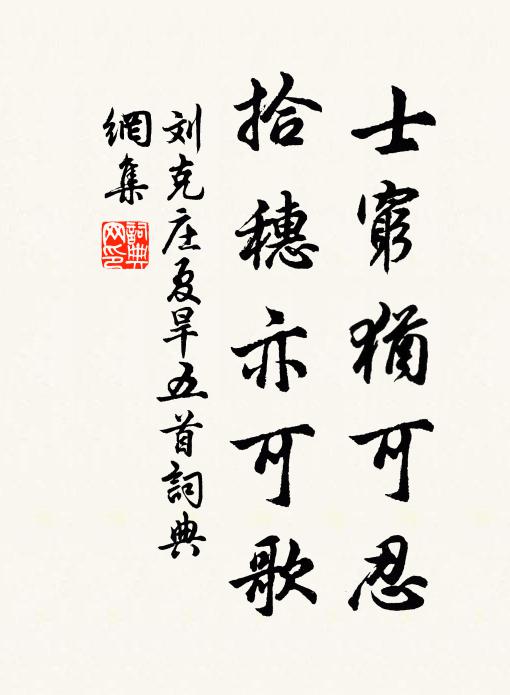 士窮猶可忍
拾穗亦可歌
刘克庄夏旱五首詞典
網集
詞典网印